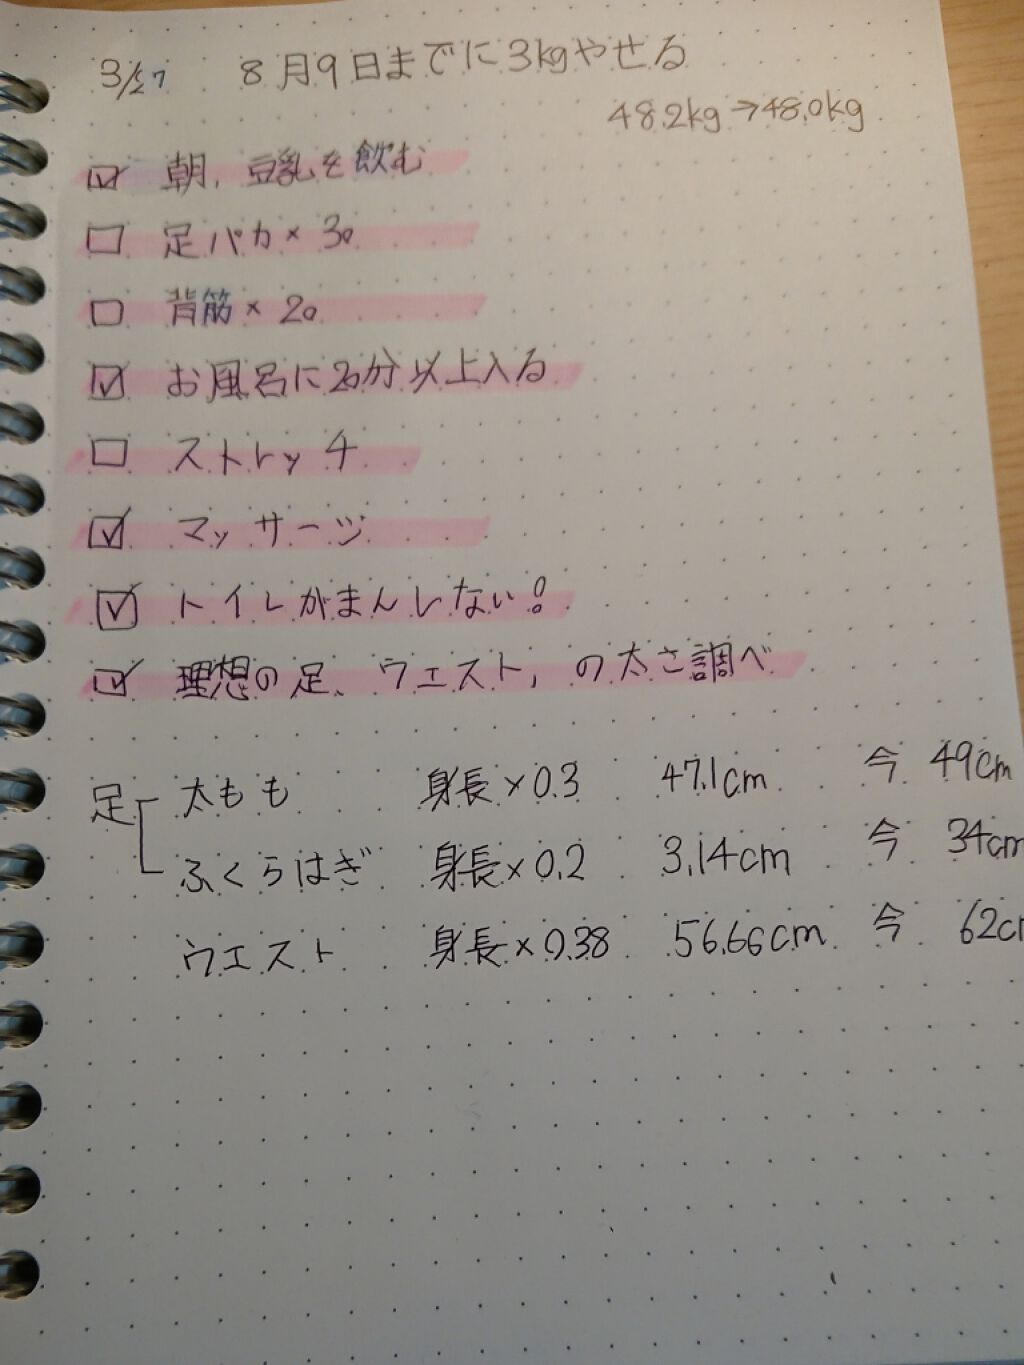 3/27 8月9日までに3kgやせる
48.2kg→48.0kg
☑ 朝、豆乳を飲む
☐ 足パカ×30
☐ 背筋×20
☑ お風呂に20分以上入る
☐ ストレッチ
☑ マッサージ
☑ トイレがまんしない!
☑ 理想の足、ウエスト、の太さ調べ
足 太もも 身長×0.3 47.1cm 今 49cm
ふくらはぎ 身長×0.2 3.14cm 今 34cm
ウエスト 身長×0.38 56.66cm 今 62cm